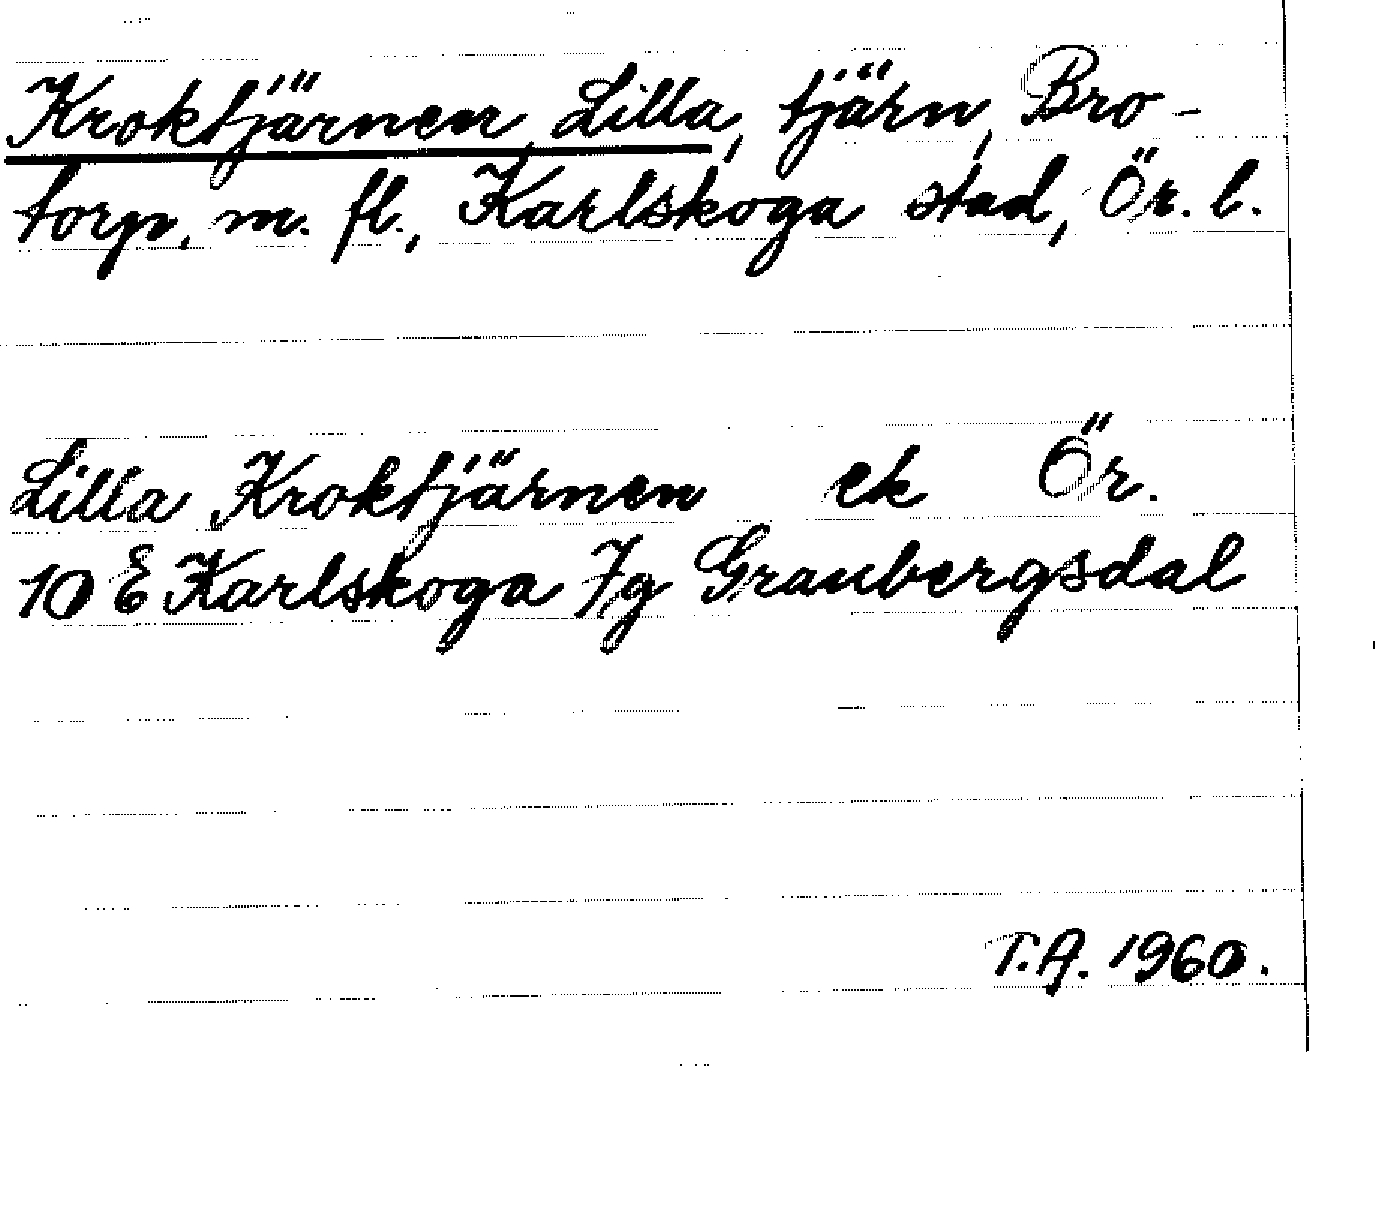 Kroktjärnen, Lilla, tjärn, Bro-
torp, m. fl., Karlskoga stad, Ör. l.
Lilla Kroktjärnen ek Ör.
10 E Karlskoga 7g Granbergsdal
T.A. 1960.